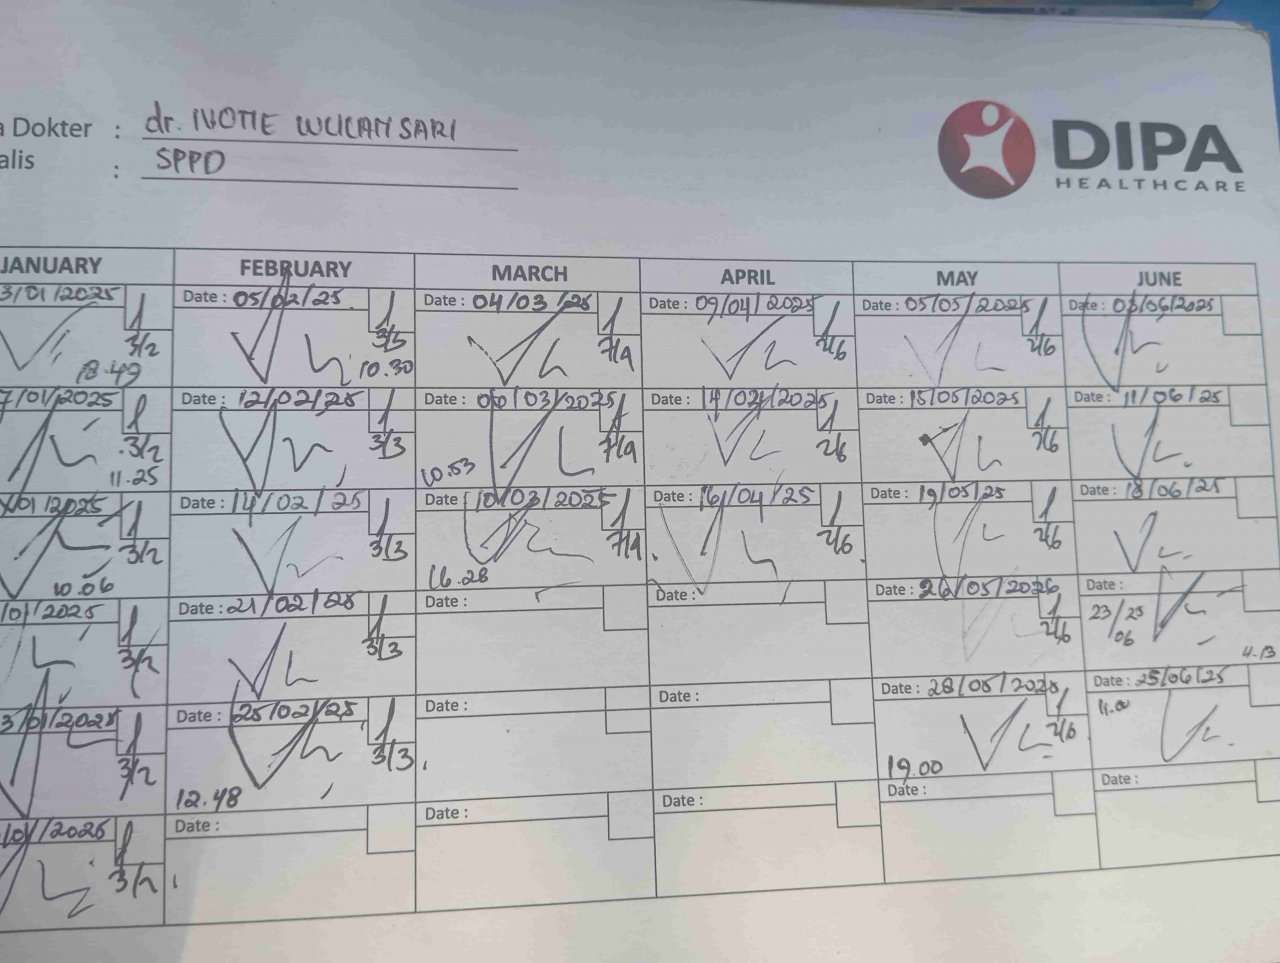 a Dokter : dr. IVONE WULAN SARI
alis : SPPD
DIPA
HEALTHCARE
JANUARY FEBRUARY MARCH APRIL MAY JUNE
3/01/2025 3/2 18.49
Date : 05/02/25 3/3 10.30
Date : 04/03/25 7/4
Date : 09/04/2025 2/6
Date : 05/05/2025 2/6
Date : 03/06/2025
7/01/2025 3/2 11.25
Date : 12/02/25 3/3
Date : 06/03/2025 7/4 10.53
Date : 14/04/2025 2/6
Date : 15/05/2025 2/6
Date : 11/06/25
/01/2025 3/2 10.06
Date : 14/02/25 3/3
Date : 10/03/2025 7/4 16.28
Date : 16/04/25 2/6
Date : 19/05/25 2/6
Date : 18/06/25
/01/2025 3/2
Date : 21/02/25 3/3
Date :
Date :
Date : 26/05/2025 2/6
Date : 23/25 06 4.13
3/01/2025 3/2
Date : 25/02/25 3/3 12.48
Date :
Date :
Date : 28/05/2025 2/6 19.00
Date : 25/06/25 11.00
/01/2025 3/2
Date :
Date :
Date :
Date :
Date :